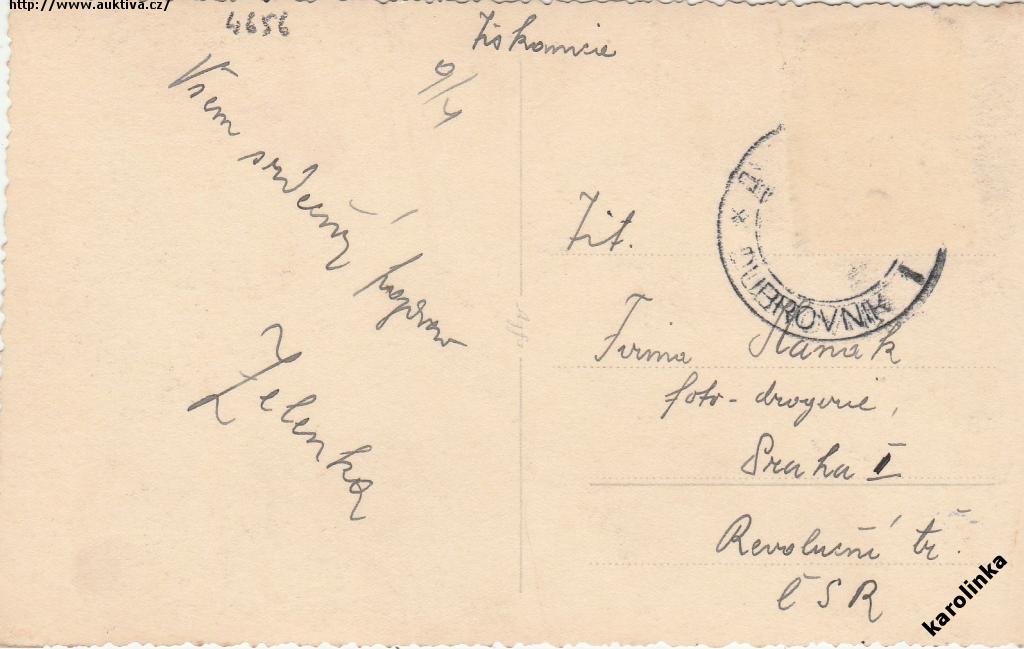 http://www.auktiva.cz/
4656
Tiskovina
9/4
Všem srdečný pozdrav
Zelenka
Tit.
DUBROVNIK 1
Firma Hanák
foto-drogerie,
Praha I
Revoluční tř.
ČSR
Agfa
karolinka